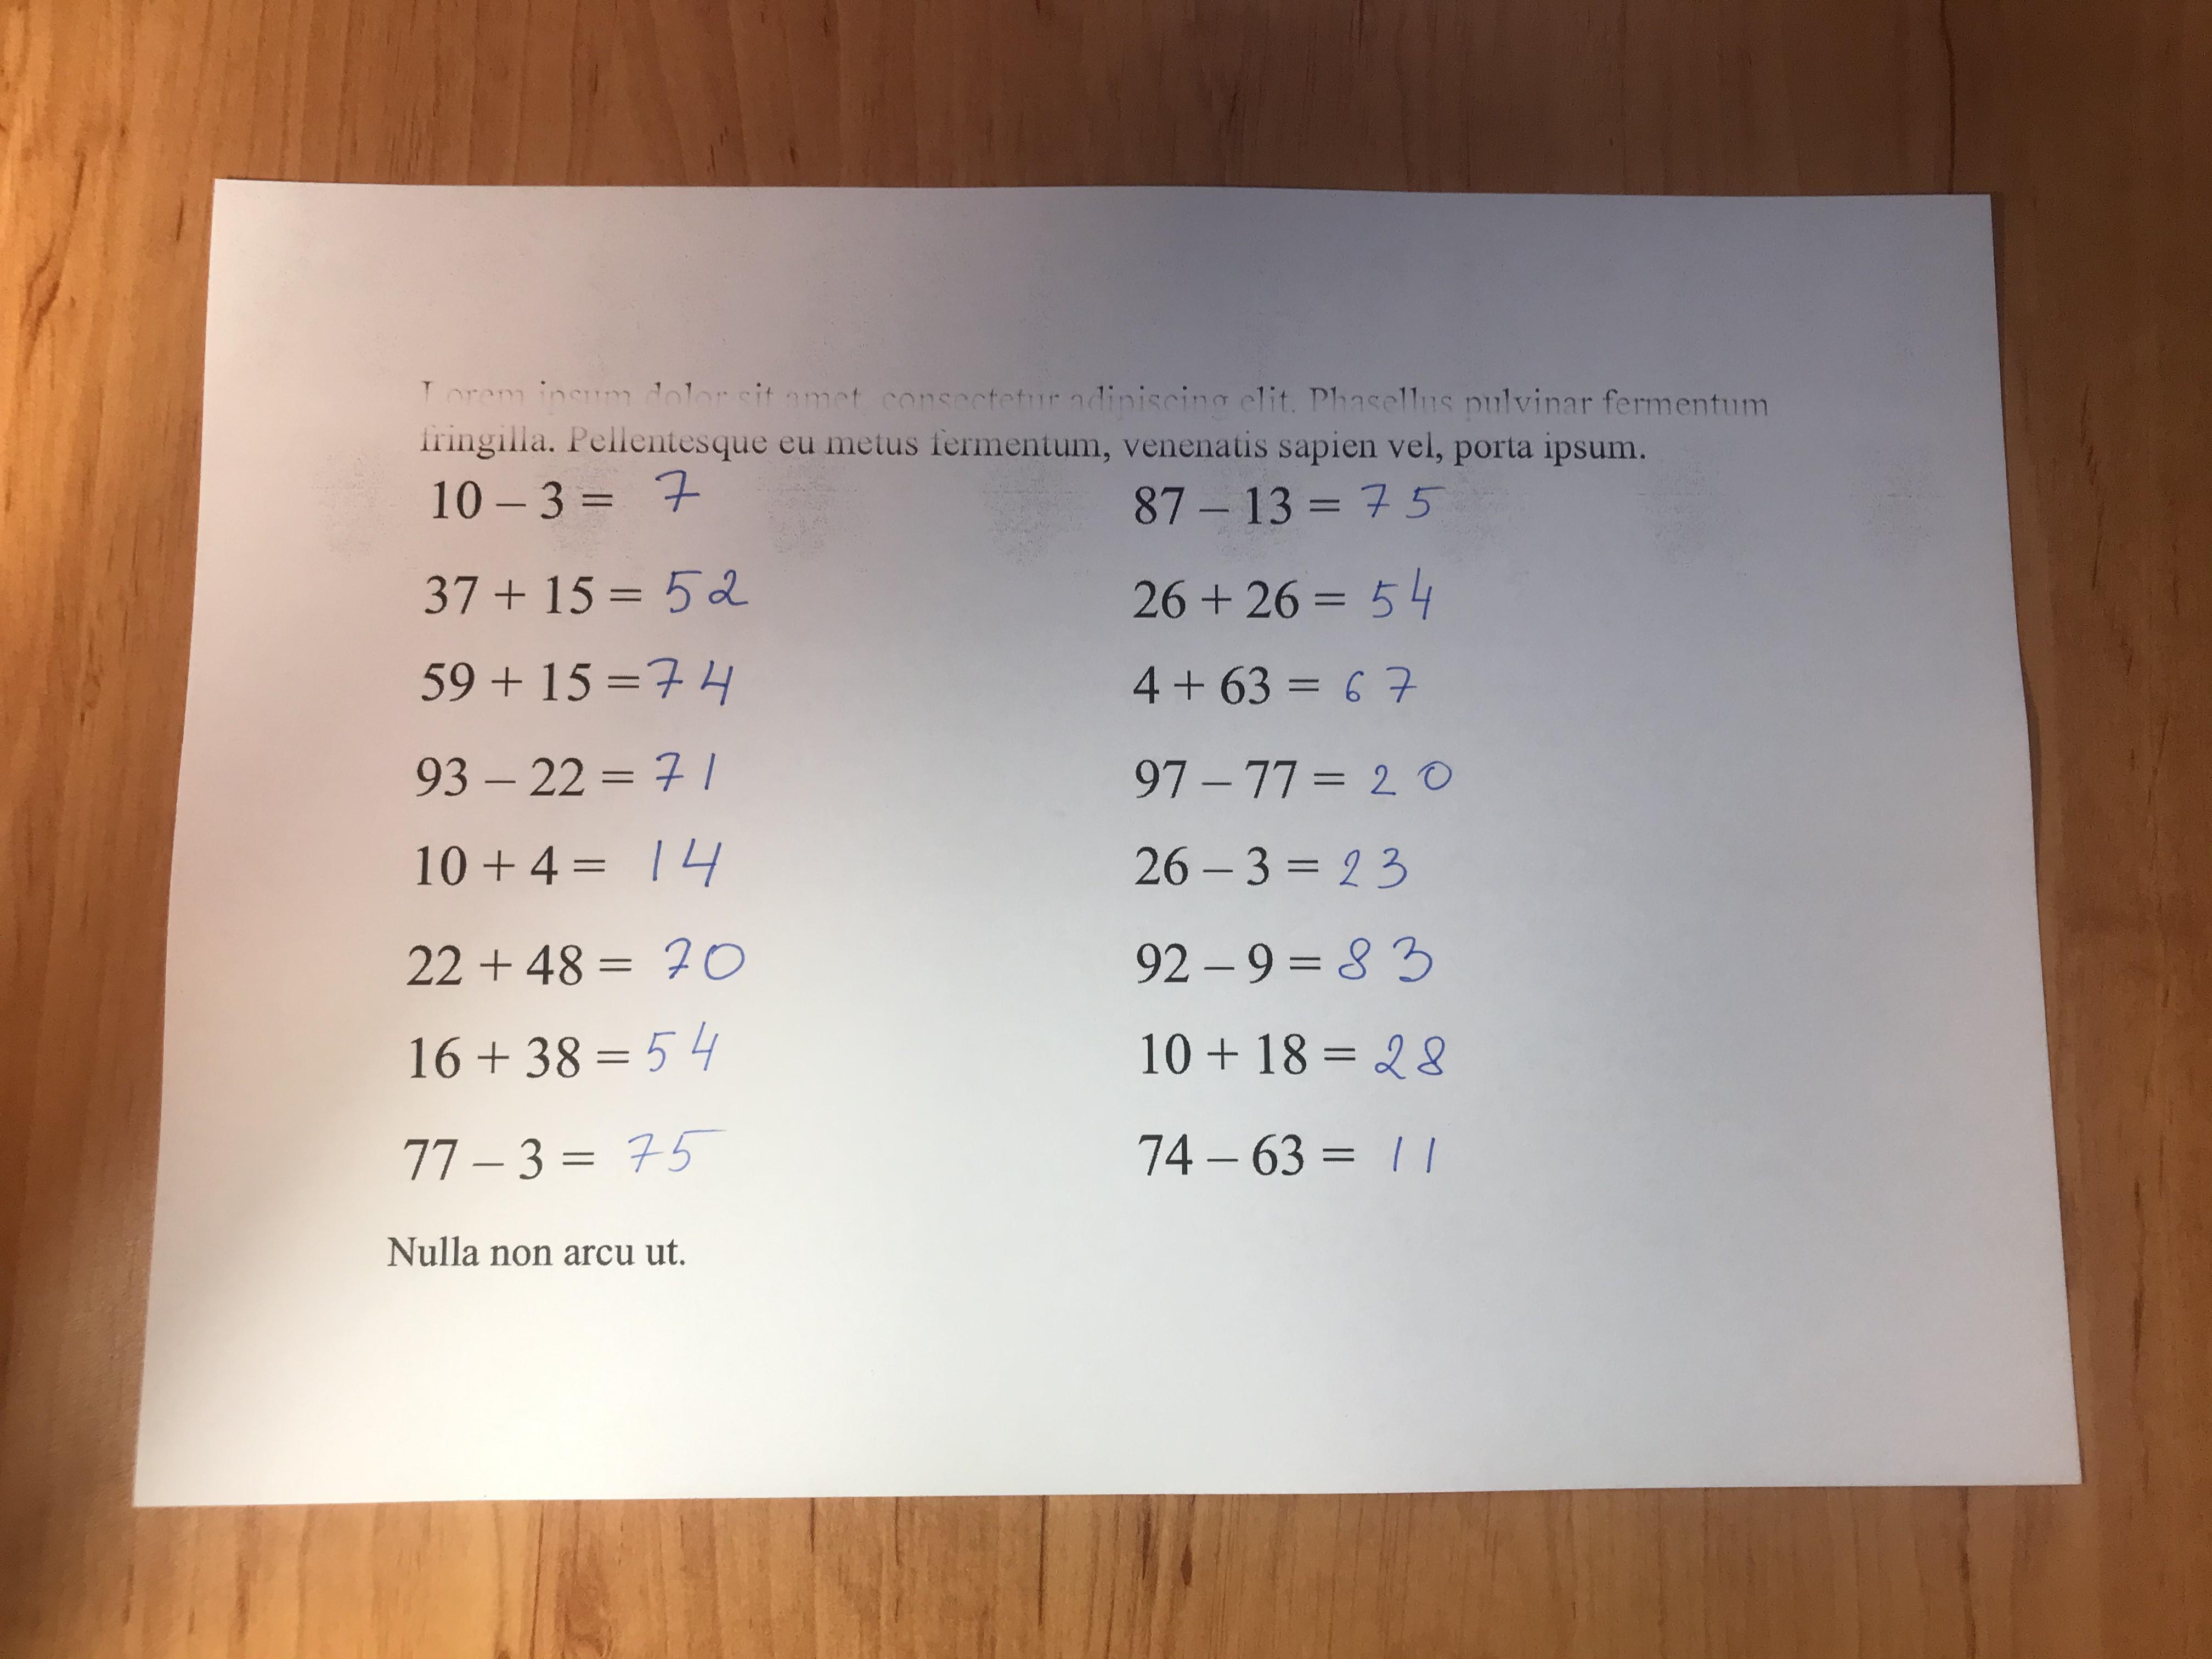 Lorem ipsum dolor sit amet, consectetur adipiscing elit. Phasellus pulvinar fermentum
fringilla. Pellentesque eu metus fermentum, venenatis sapien vel, porta ipsum.
10 – 3 = 7
37 + 15 = 52
59 + 15 = 74
93 – 22 = 71
10 + 4 = 14
22 + 48 = 70
16 + 38 = 54
77 – 3 = 75
87 – 13 = 75
26 + 26 = 54
4 + 63 = 67
97 – 77 = 20
26 – 3 = 23
92 – 9 = 83
10 + 18 = 28
74 – 63 = 11
Nulla non arcu ut.